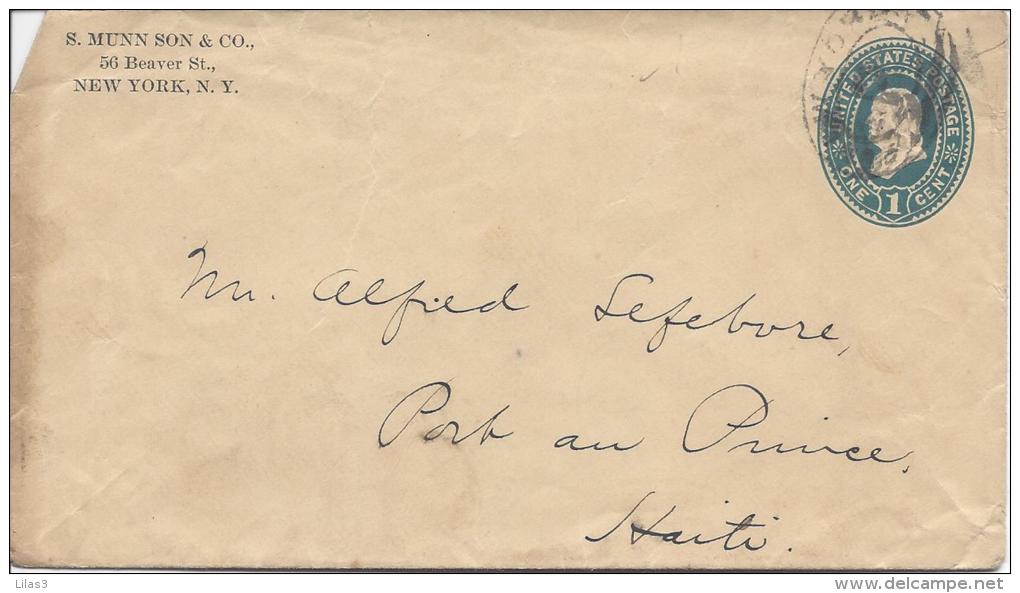 S. MUNN SON & CO.,
56 Beaver St.,
NEW YORK, N. Y.
UNITED STATES POSTAGE
ONE 1 CENT
Mr. Alfred Lefebvre,
Port au Prince,
Haiti.
Lilas3
www.delcampe.net